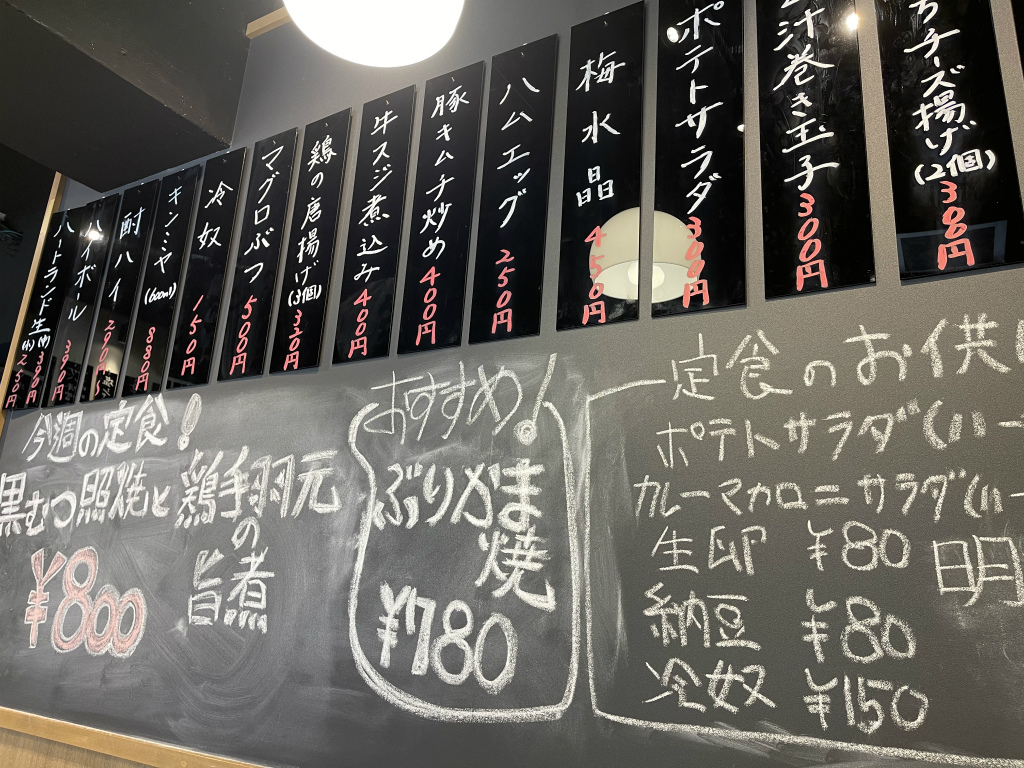 ちチーズ揚げ(2個)300円
汁巻き玉子300円
ポテトサラダ300円
梅水晶450円
ハムエッグ250円
豚キムチ炒め400円
牛スジ煮込み400円
鶏の唐揚げ(3個)320円
マグロぶつ500円
冷奴150円
キンミヤ(600ml)
酎ハイ290円
ハイボール
ハートランド生
今週の定食!
黒むつ照焼と鶏手羽元
の
旨煮
¥800
おすすめ!
ぶりかま
焼
¥780
定食のお供
ポテトサラダ(ハー
カレーマカロニサラダ(ハー
生卵 ¥80
納豆 ¥80
冷奴 ¥150
明